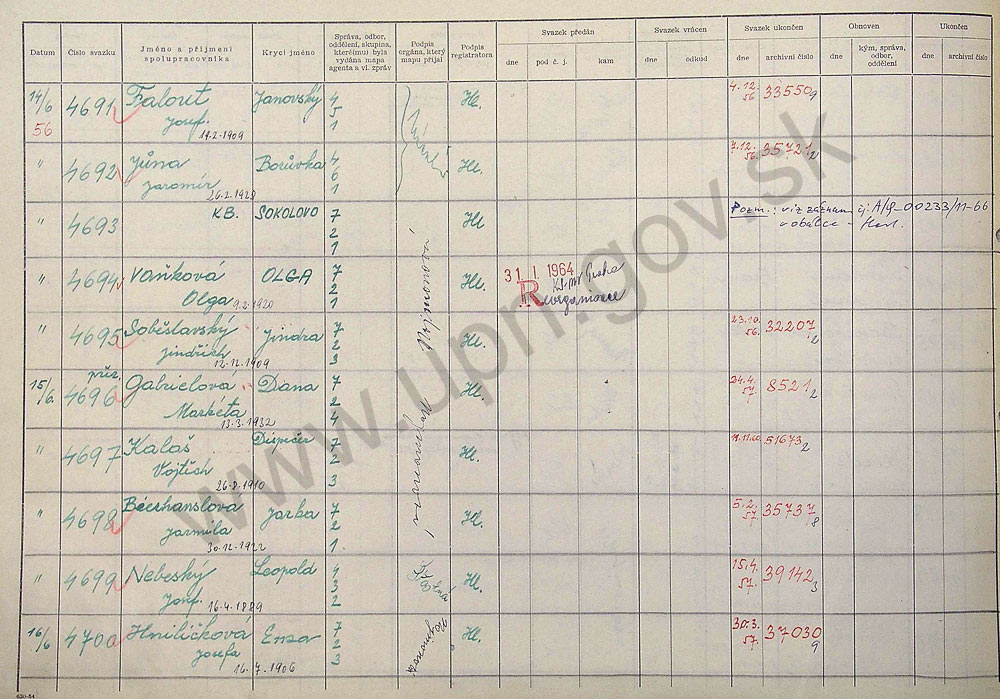 Datum
Číslo svazku
Jméno a příjmení
spolupracovníka
Krycí jméno
Správa, odbor,
oddělení, skupina,
které(mu) byla
vydána mapa
agenta a vl. zpráv
Podpis
orgána, který
mapu přijal
Podpis
registratora
Svazek předán
dne
pod č. j.
kam
Svazek vrácen
dne
odkud
Svazek ukončen
dne
archivní číslo
Obnoven
dne
kým, správa,
odbor,
oddělení
Ukončen
dne
archivní číslo
14/6 4691 Falout Janovský 4 Hl. 4.12. 33550
56 Josef 5 56 9
14.2.1909 1
" 4692 Jůna Borůvka 4 Hl. 7.12. 35721
Jaromír 6 56. 2
26.2.1928 1
" 4693 K.B. SOKOLOVO 7 Hl Pozn.: viz záznam čj. A/9-00233/11-66
2 v obálce
1
" 4694 Vaňková OLGA 7 Hl. 31 I. 1964
Olga 2 Reorganizace
9.2.1920 1
" 4695 Soběslavský Jindra 7 Hl. 23.10. 32207
Jindřich 2 56. 2
12.12.1909 3
15/6. 4696 Gabrielová Dana 7 Hl. 24.4. 8521
Markéta 2 57. 2
13.3.1932 4
" 4697 Kalaš Dispečer 7 Hl. 51673
Vojtěch 2 2
26.8.1910 3
" 4698 Béerhanslova Jarka 7 Hl. 5.2. 35737
Jarmila 2 57. 8
30.12.1922 1
" 4699 Nebeský Leopold 4 Hl. 15.4. 39142
Josef 3 57. 3
16.4.1889 2
16/6 4700 Hniličková Ema 7 Hl. 30.3. 37030
Josefa 2 57. 9
16.7.1906 3
www.upn.gov.sk